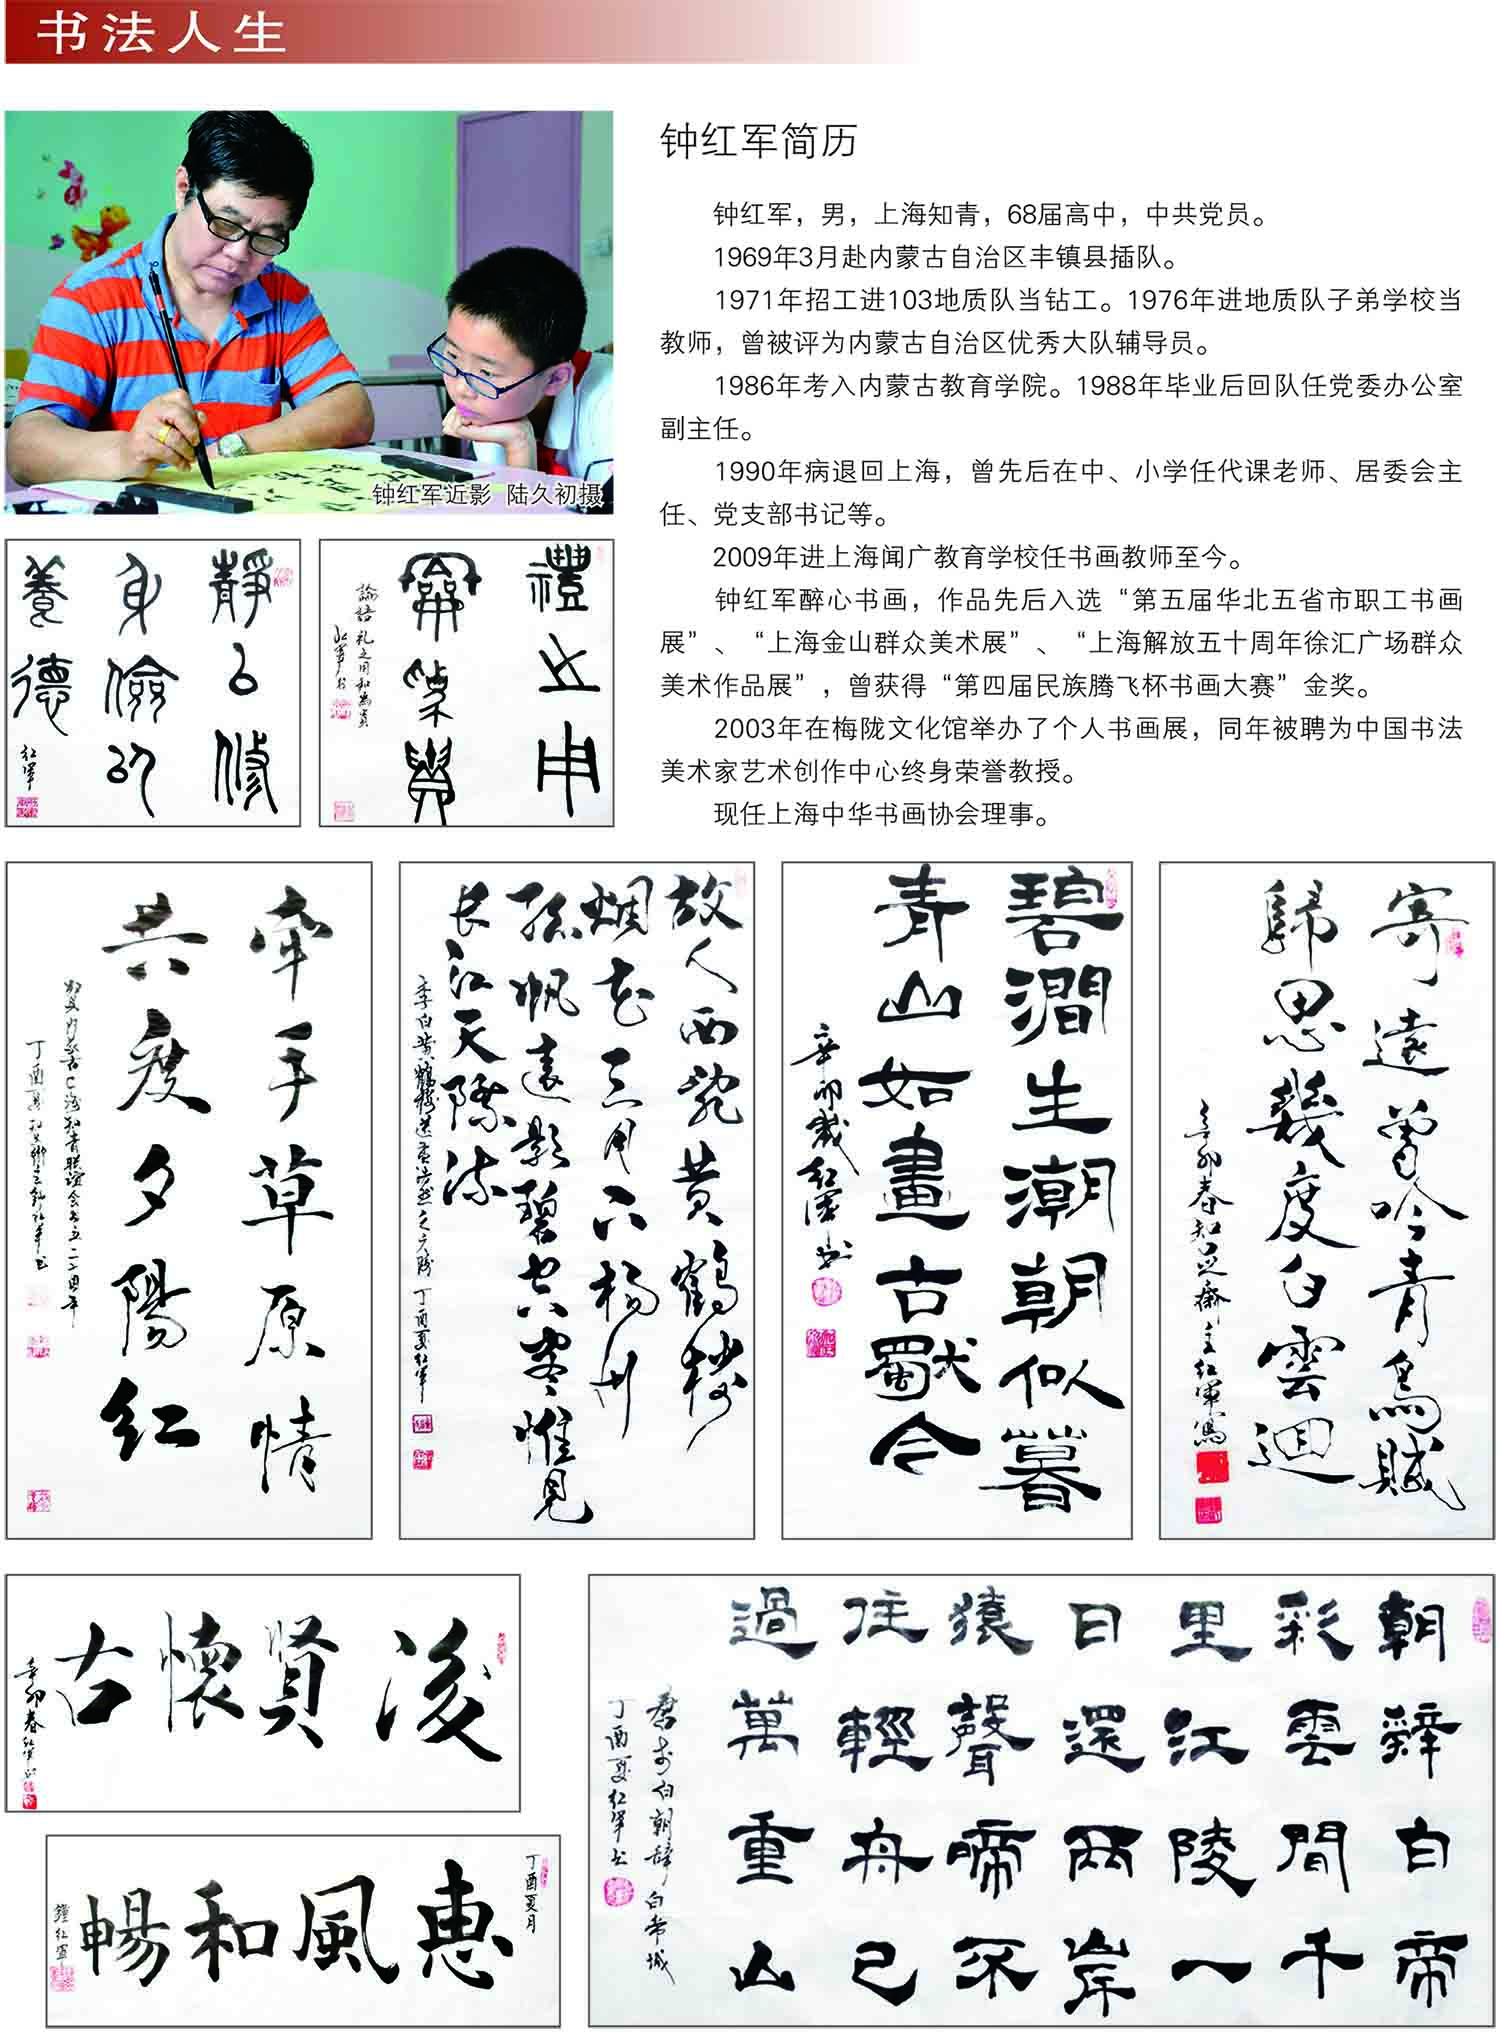 书法人生
钟红军简历
钟红军，男，上海知青，68届高中，中共党员。
1969年3月赴内蒙古自治区丰镇县插队。
1971年招工进103地质队当钻工。1976年进地质队子弟学校当
教师，曾被评为内蒙古自治区优秀大队辅导员。
1986年考入内蒙古教育学院。1988年毕业后回队任党委办公室
副主任。
1990年病退回上海，曾先后在中、小学任代课老师、居委会主
任、党支部书记等。
2009年进上海闻广教育学校任书画教师至今。
钟红军醉心书画，作品先后入选“第五届华北五省市职工书画
展”、“上海金山群众美术展”、“上海解放五十周年徐汇广场群众
美术作品展”，曾获得“第四届民族腾飞杯书画大赛”金奖。
2003年在梅陇文化馆举办了个人书画展，同年被聘为中国书法
美术家艺术创作中心终身荣誉教授。
现任上海中华书画协会理事。
钟红军近影 陆久初摄
靜以修
身儉以
養德
红军
禮之用
和為貴
論語礼之用和為貴
红军书
牵手草原情
共度夕陽红
故人西辞黄鹤楼
烟花三月下扬州
孤帆远影碧空尽惟見
长江天际流
李白黄鹤楼送孟浩然之广陵 丁酉夏红军
碧澗生潮朝似暮
青山如畫古猷今
辛卯歲红軍书
寄遠曾吟青鳥賦
歸思幾度白雲迴
辛卯春知足齋主红軍寫
後賢懷古
辛卯春红军书
丁酉夏月
惠風和暢
鐘红軍
朝辭白帝
彩雲間千
里江陵一
日還兩岸
猿聲啼不
住輕舟已
過萬重山
李白朝辞白帝城
丁酉夏红军书